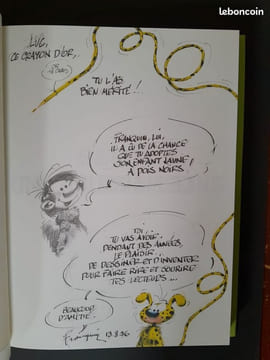 leboncoin
LUC,
CE CRAYON D'OR,
TU L'AS
BIEN MÉRITÉ !..
FRANQUIN, LUI,
IL A EU DE LA CHANCE
QUE TU ADOPTES
SON ENFANT JAUNE
A POIS NOIRS !
TOI,
TU VAS AVOIR
PENDANT DES ANNÉES,
LE PLAISIR
DE DESSINER ET D'INVENTER
POUR FAIRE RIRE ET SOURIRE
TES LECTEURS ...
BEAUCOUP
D'AMITIÉ
Franquin